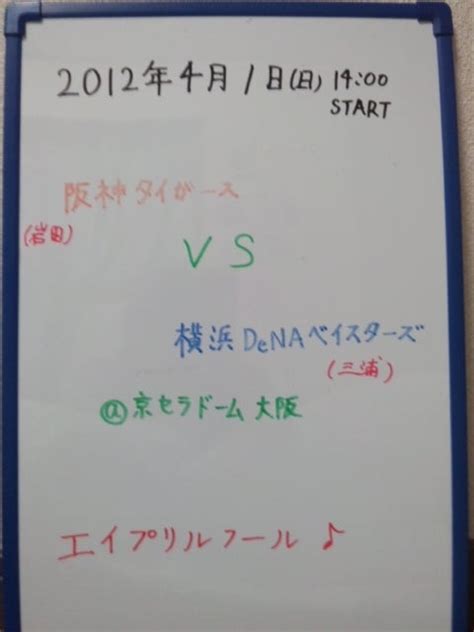 2012年4月1日(日) 14:00
START
阪神タイガース
(岩田)
VS
横浜DeNAベイスターズ
(三浦)
@京セラドーム大阪
エイプリルフール♪